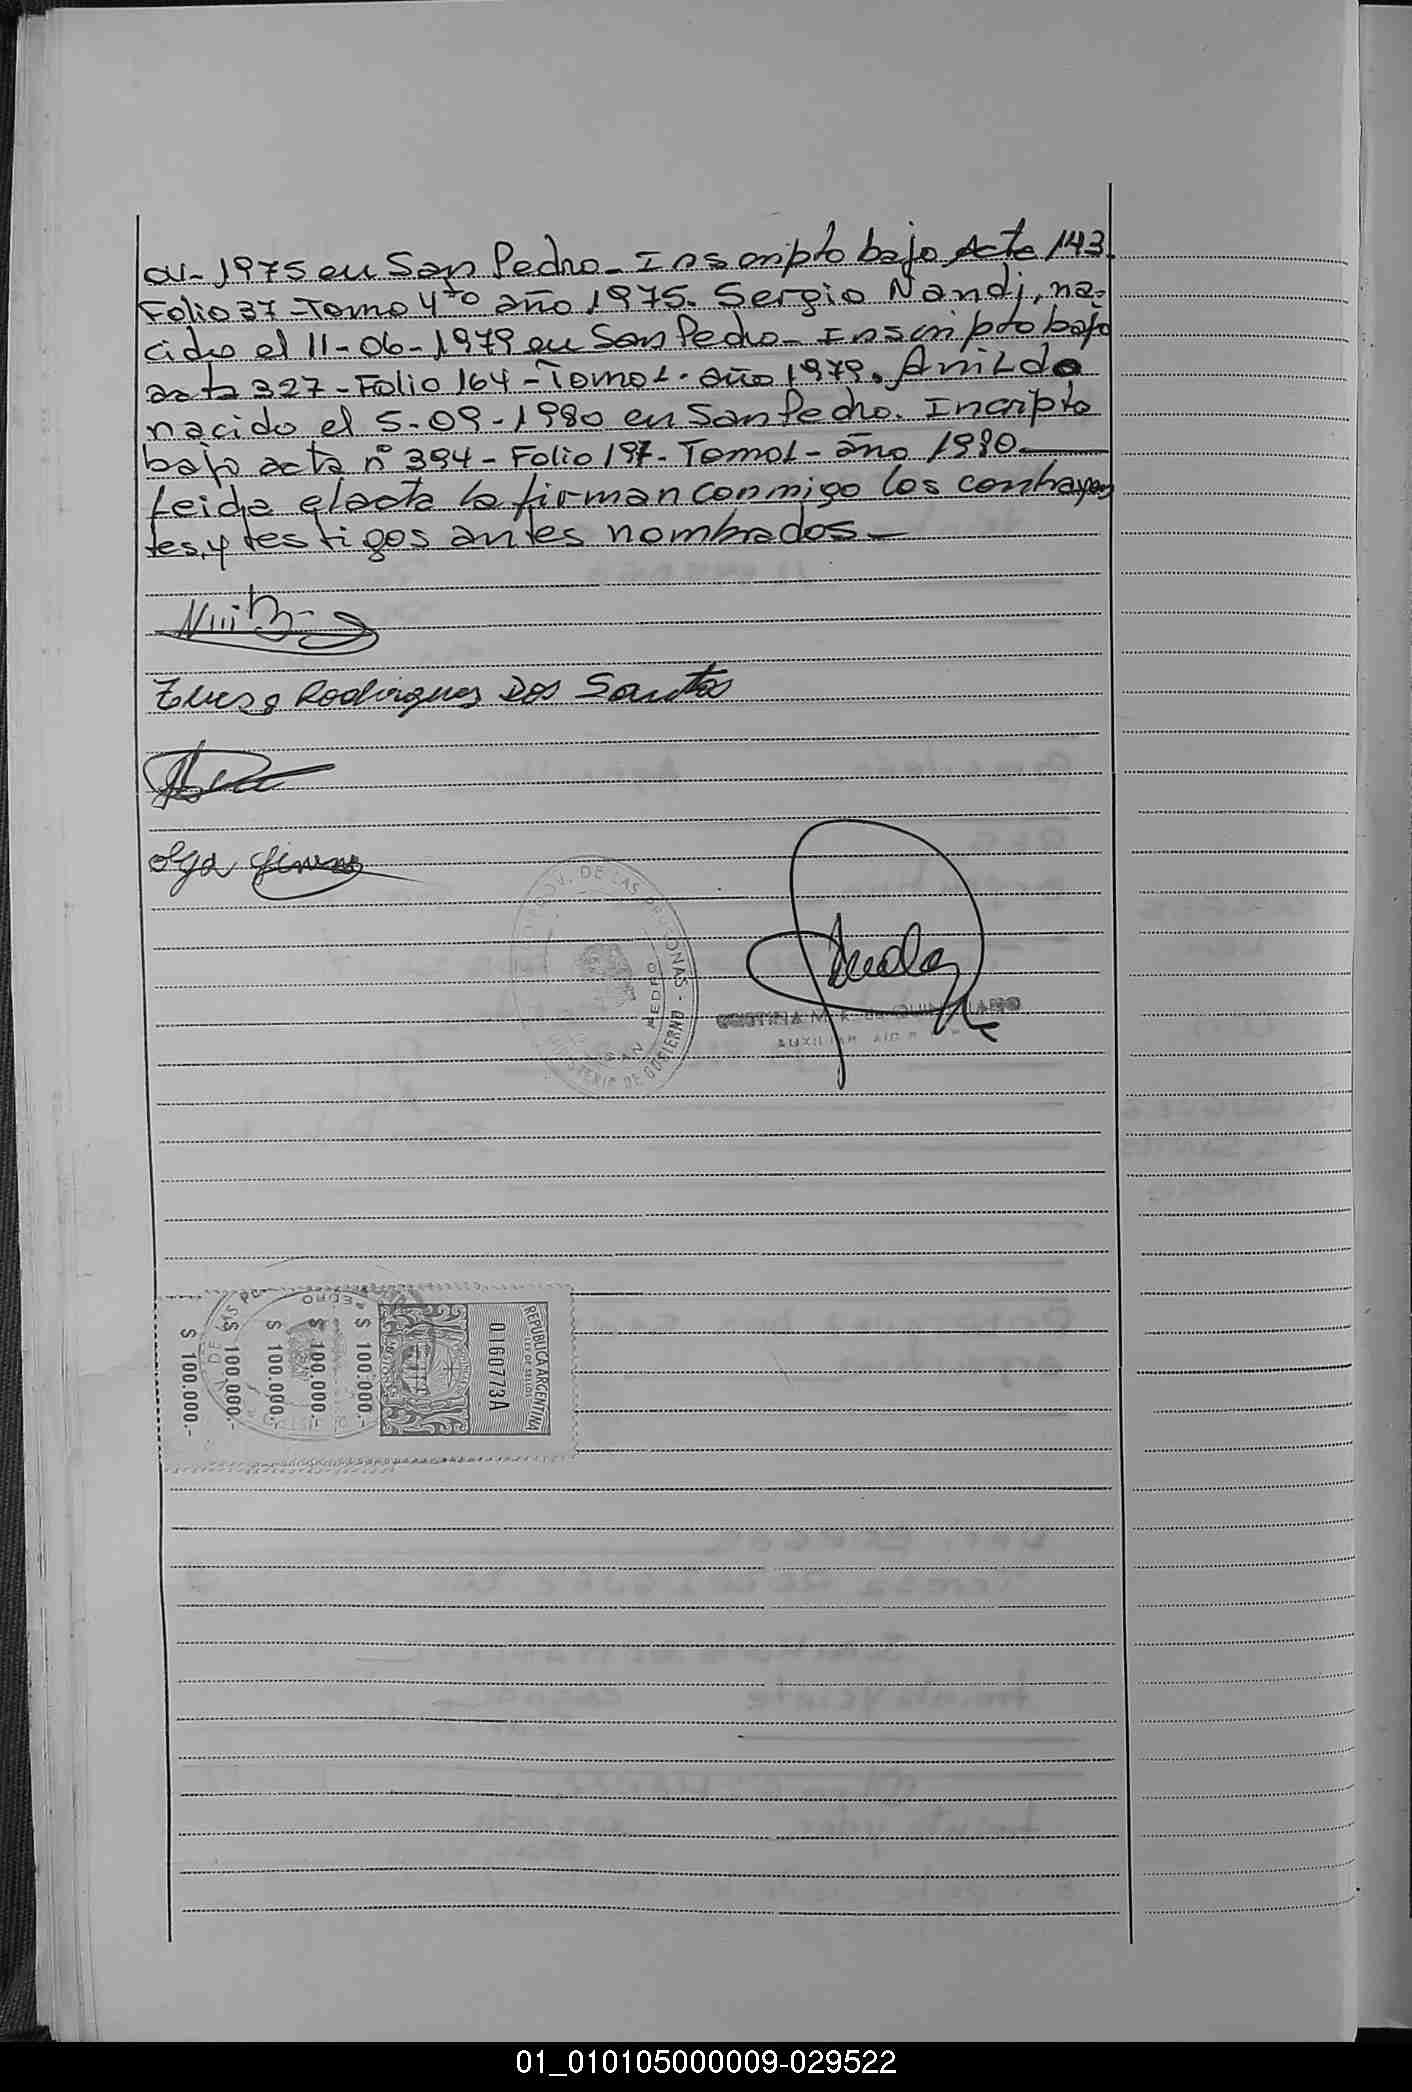 01-1975 en San Pedro_ Inscripto bajo Acta 143.
Folio 37 -Tomo 4to año 1975. Sergio Nandi, na-
cido el 11-06-1979 en San Pedro_ Inscripto bajo
acta 327 - Folio 164 - Tomo 1. año 1979. Anildo
nacido el 5-09-1980 en San Pedro. Incripto
bajo acta nº 394 - Folio 197 - Tomo 1 - año 1980.
Leida el acta la firman conmigo los contrayen
tes, y testigos antes nombrados_
Rodriguez Dos Santos
Olga
PROV. DE LAS
MISIONES
SAN PEDRO
DE GOBIERNO
AUXILIAR
REPUBLICA ARGENTINA
LEY DE SELLOS
0160773A
$ 100.000.-
$ 100.000.-
$ 100.000.-
$ 100.000.-
$ 100.000.-
01_010105000009-029522